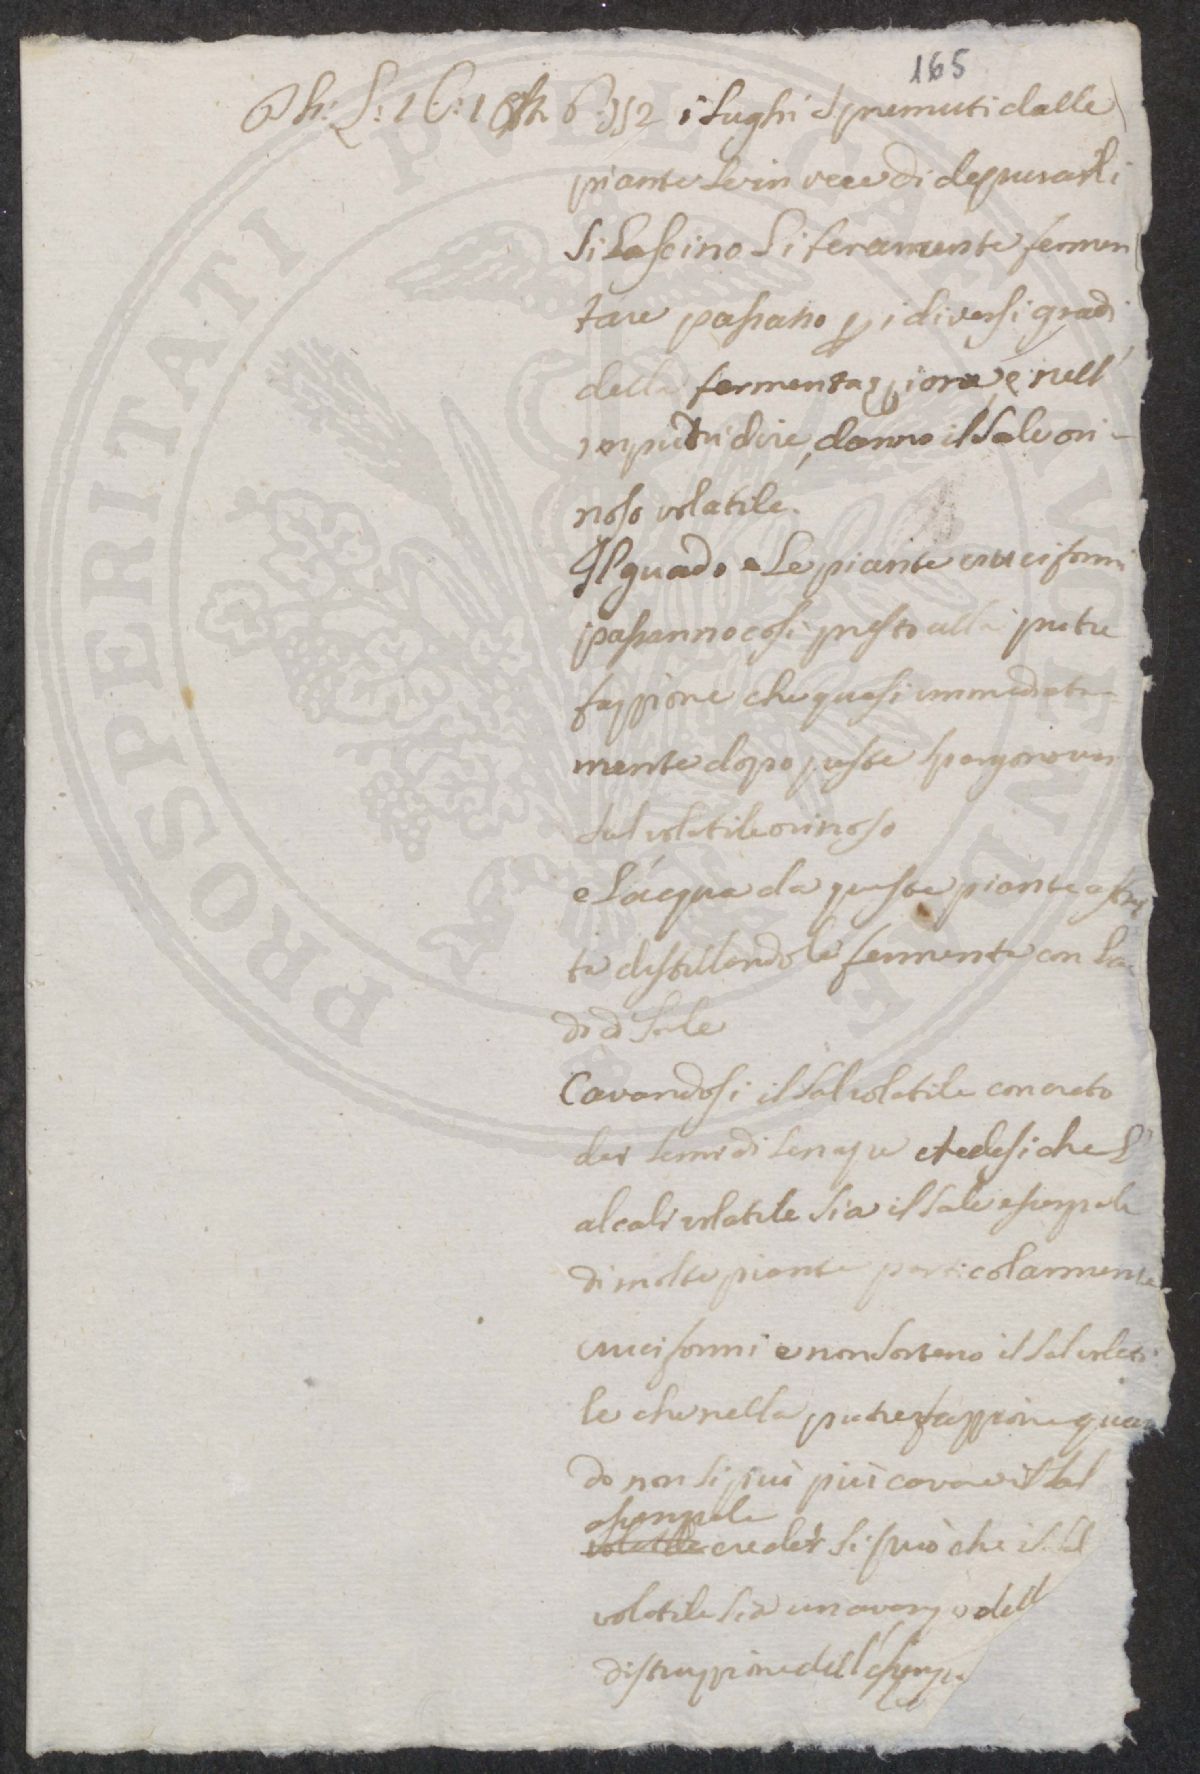 165
i sughi spremuti dalle
piante se in vece di depurarli
si lascino liberamente fermen
tare passano p i diversi gradi
della fermentazione, e nell'
imputridire, danno il sale ori-
noso volatile.
Il guado e le piante cruciformi
passanno così presto alla putre
fazzione che quasi immediata
mente dopo peste spargono un
sal volatile orinoso
e l'acqua da queste piante
ta distillandole fermenta con
di Sale
Cavandosi il sal volatile concreto
dei semi di senape credesi che l'
alcali volatile sia il sale essenzale
di molte piante particolarmente
cruciformi e non sortono il sal volati
le che nella putrefazzione quan
do non si può più cavare il sal
essenzale
volatile creder si può che il sal
volatile sia un avanzo dell
distruzzione dell'
PROSPERITATI PUBLICAE